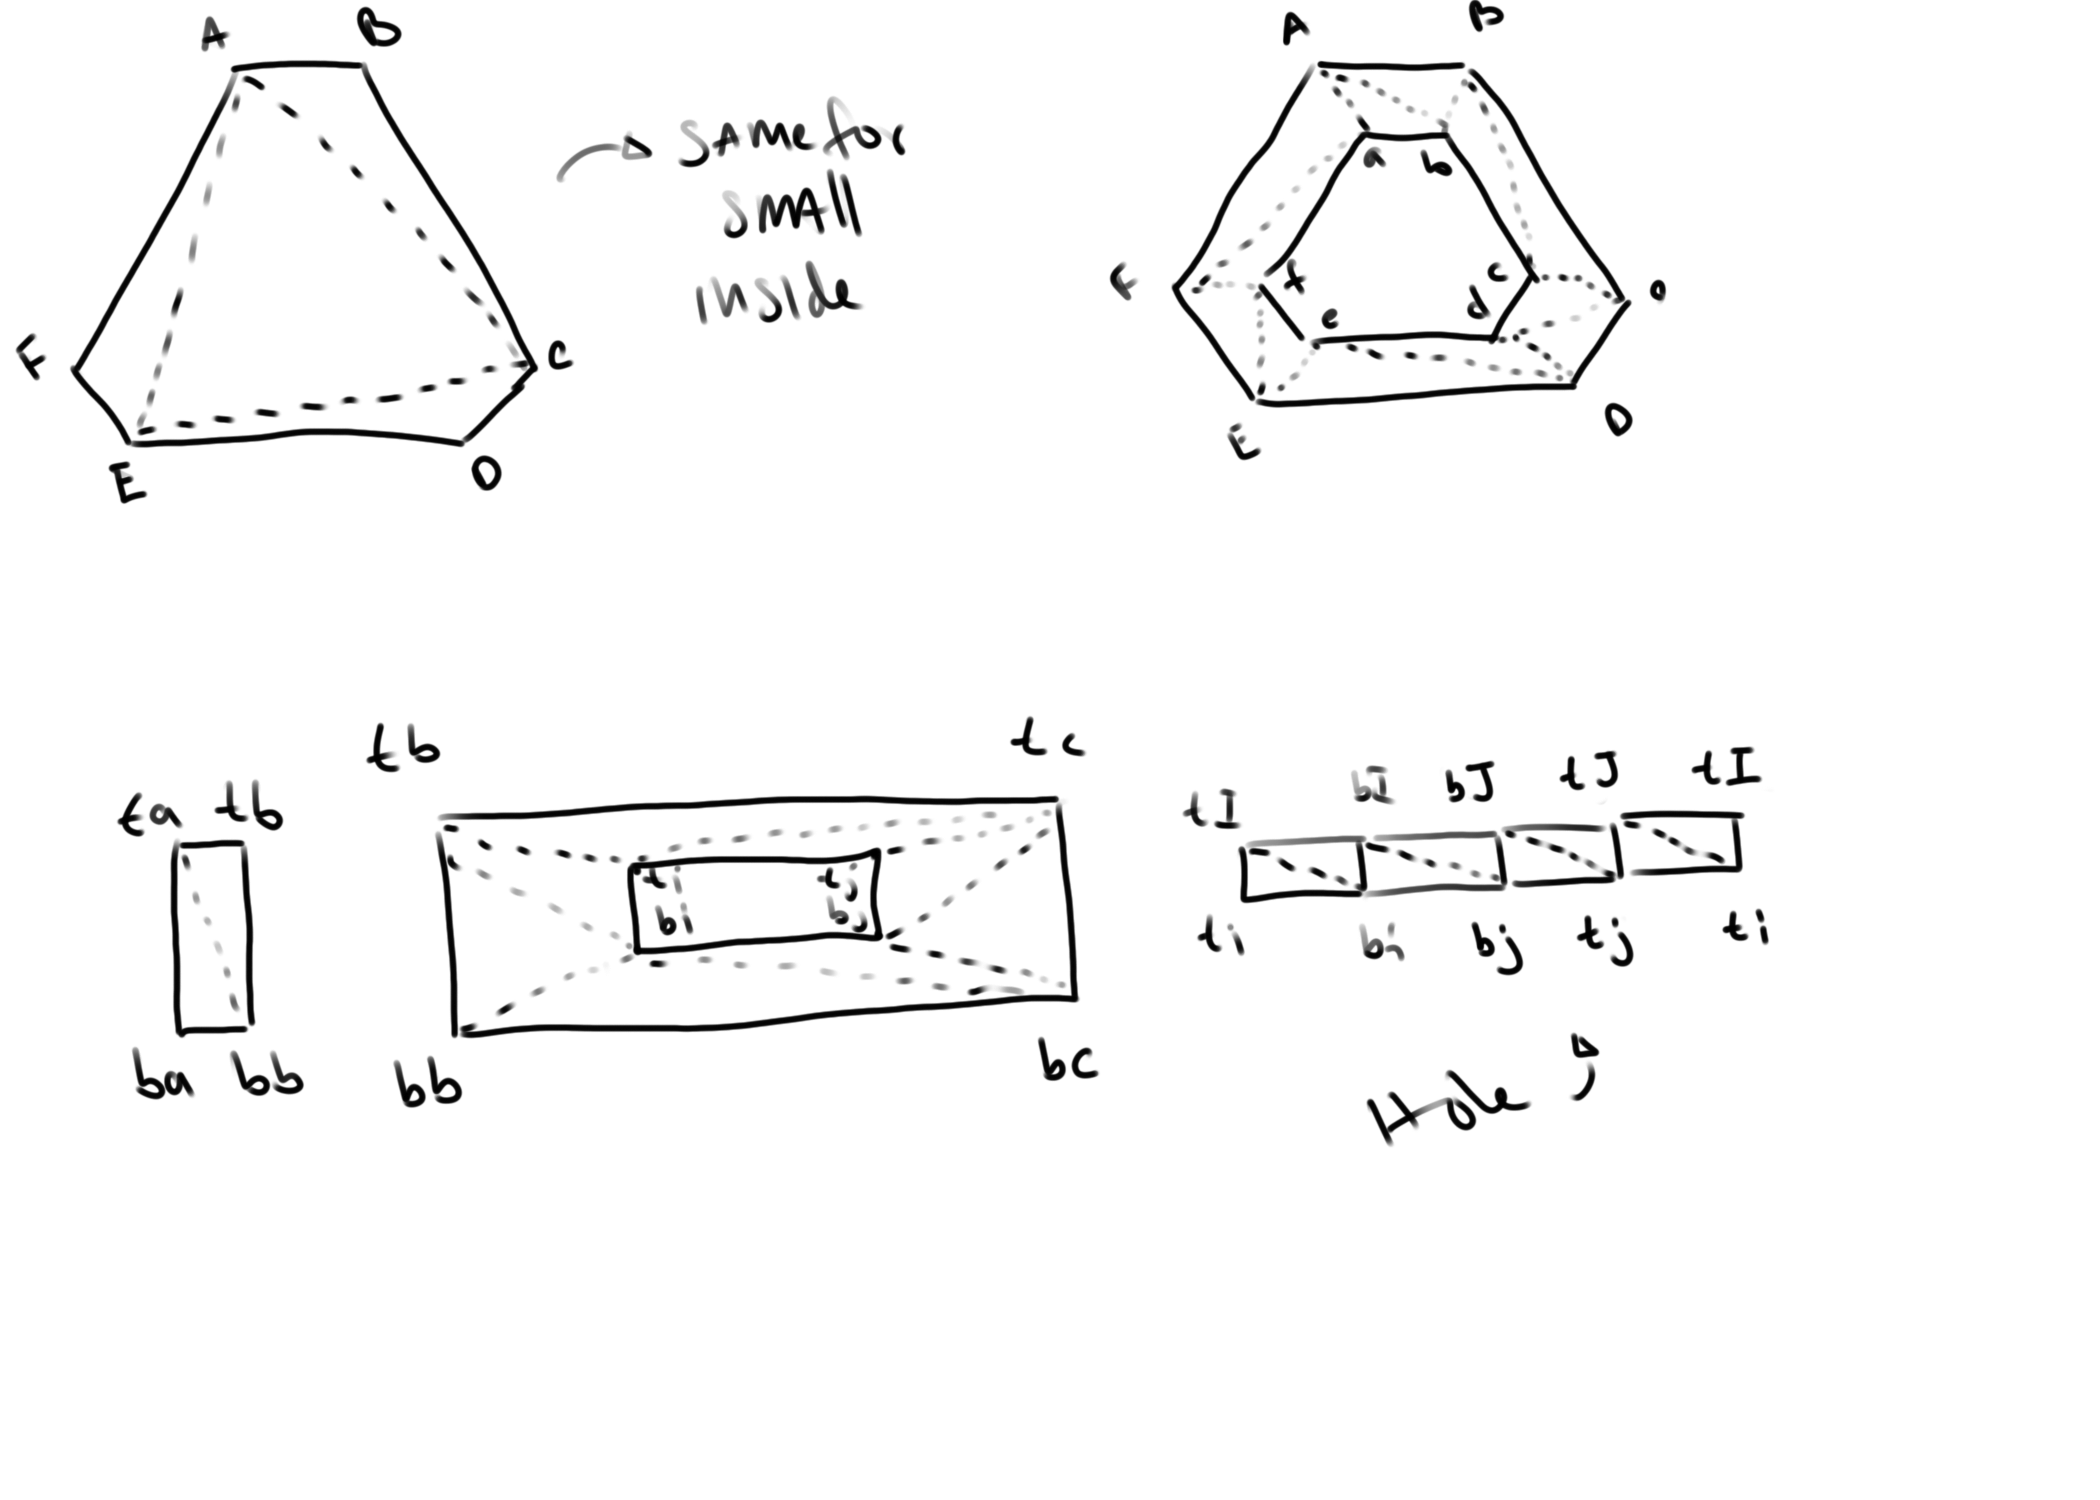 A B
same for
small
inside
F
C
E
D
A B
a b
F
f
c
e
d
E
D
tb tc
ta tb
ti tj
bi bj
ba bb
bb bc
tI bI bJ tJ tI
ti bi bj tj ti
Hole